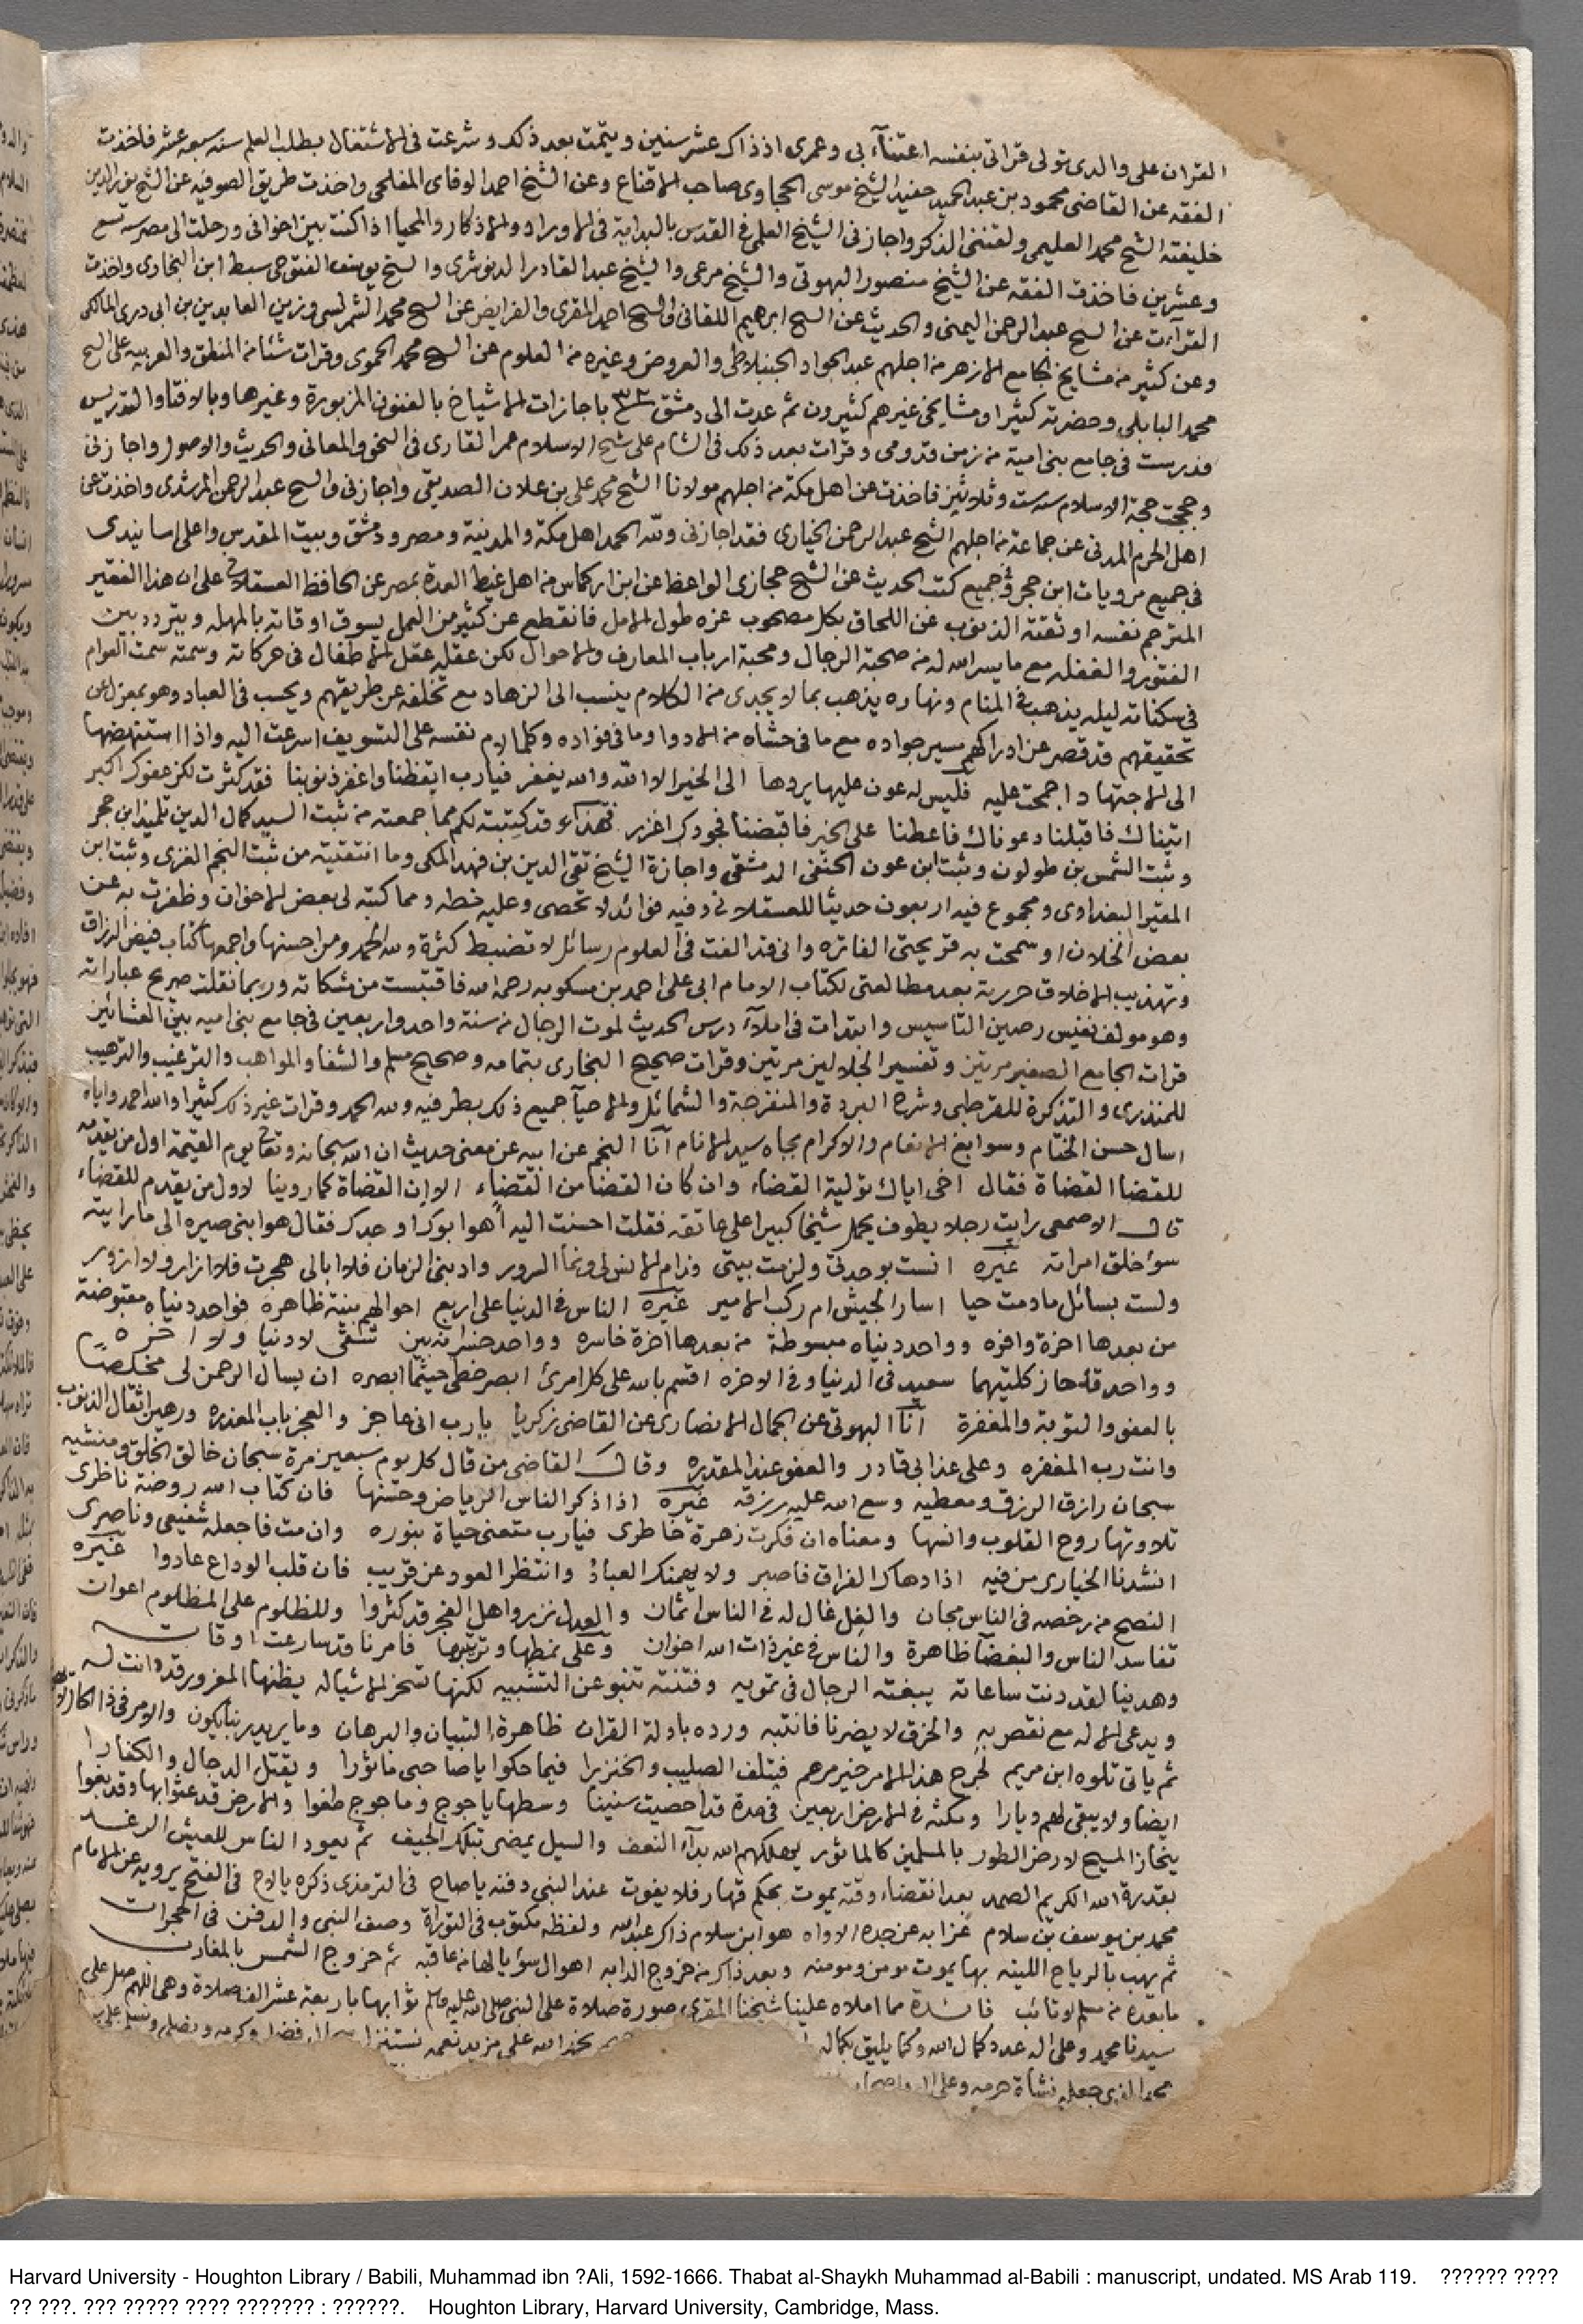 القران على والدى تولى قراتى بنفسه اعتنآء بى وعمرى اذ ذاك عشر سنين ويتمت بعد ذلك وشرعت فى الاشتغال بطلب العلم سنه سبعه عشر فاخذت
الفقه عن القاضى محمود بن عبد الحميد حفيد الشيخ موسى الحجاوى صاحب الاقناع وعن الشيخ احمد الوفاى المفلحى واخذت طريق الصوفيه عن الشيخ
خليفته الشيخ محمد العليمى ولقننى الذكر واجازنى الشيخ العلمى فى القدس بالبداية فى الاوراد والاذكار والمحيا اذا كنت بين اخوانى ورحلت الى مصر سنه تسع
وعشرين فاخذت الفقه عن الشيخ منصور البهوتى والشيخ مرعى والشيخ عبد القادر الدنوشرى والشيخ يوسف الفتوحى سبط ابن النجار واخذت
القرآت عن الشيخ عبد الرحمن اليمنى والحديث عن الشيخ ابرهيم اللقانى والشيخ احمد المقرى والفرايض عن الشيخ محمد الشمرلسى وزين العابدين بن ابى درى المالكى
وعن كثير من مشايخ الجامع الازهر من اجلهم عبد الجواد الجنبلاطى والعروض وغيره من العلوم عن الشيخ محمد الحموى وقرات شئا من المنطق والعربيه على الشيخ
محمد البابلى وحضرته كثيرا ومشايخى غيرهم كثيرون ثم عدت الى دمشق باجازات الاشياخ بالفنون المزبورة وغيرها وبالافتا والتدريس
فدرست فى جامع بنى امية من زمن قدومى وقرات بعد ذلك فى الشام على شيخ الاسلام عمر القارى فى النحو والمعانى والحديث والاصول واجازنى
وحججت حجة الاسلام سنه ست وثلاثين فاخذت عن اهل مكة من اجلهم مولانا الشيخ محمد على بن علان الصديقى واجازنى والشيخ عبد الرحمن المرشدى واخذت عن
اهل الحرم المدنى عن جماعة من اجلهم الشيخ عبد الرحمن الخيارى فقد اجازنى ولله الحمد اهل مكة والمدينة ومصر ودمشق وبيت المقدس واعلى اسانيدى
فى جميع مرويات ابن حجر وفى جميع كتب الحديث عن الشيخ حجازى الواعظ عن ابن اركماس من اهل غيط العدة بمصر عن الحافظ العسقلانى على ان هذا الفقير
المترجم نفسه اوثقته الذنوب عن اللحاق بكل مصحوب غره طول الامل فانقطع عن كثير من العمل يسوف اوقاته بالمهله ويتردد بين
الفتور والغفله مع ما يسر الله له من صحبة الرجال ومحبة ارباب المعارف والاحوال لكن عقله عقل الاطفال فى حركاته وسمته سمت العوام
فى سكناته ليله يذهب فى المنام ونهاره يذهب بما لا يجدى من الكلام ينسب الى الزهاد مع تخلفه عن طريقهم ويحسب فى العباد وهو بمعزل عن
تحقيقهم قد قصر عن ادراكهم سير جواده مع ما فى حشاه من الادوا وما فى فؤاده وكلما لام نفسه على التسويف اسرعت اليه واذا استنهضها
الى الاجتهاد اجمحت عليه فليس له عون عليها يروها الى الخير الا الله والله يغفر فيارب ايقظنا واغفر ذنوبنا فقد كثرت لكن عفوك اكبر
اتيناك فاقبلنا دعوناك فاعطنا على الخير فاقبضنا فجودك اغزر فهذا قد كتبته لكم مما جمعته من ثبت السيد كمال الدين تلميذ ابن حجر
وثبت الشمس بن طولون وثبت ابن عون الحنفى الدمشقى واجازة الشيخ تقى الدين بن فهد المكى وما انتقيته من ثبت النجم الغزى وثبت ابن
المقير البغدادى ومجموع فيه اربعون حديثا للعسقلانى وفيه فوائد لا تحصى وعليه خطه ومما كتبته لى بعض الاخوان وظفرت به عن
بعض الخلان او سمحت به قريحتى الفاتره وانى قد الفت فى العلوم رسائل لا تضبط كثرة ولله الحمد ومن احسنها واجمعها كتاب فيض الرزاق
وتهذيب الاخلاق حررته بعد مطالعتى لكتاب الامام ابى على احمد بن مسكويه رحمه الله فاقتبست من مشكاته وربما نقلت صريح عباراته
وهو مولف نفيس رصين التاسيس وابتدات فى املآء درس الحديث لموت الرجال من سنة واحد واربعين فى جامع بنى اميه بين العشائين
قرات الجامع الصغير مرتين وتفسير الجلالين مرتين وقرات صحيح البخارى بتمامه وصحيح مسلم والشفا والمواهب والترغيب والترهيب
للمنذرى والتذكرة للقرطبى وشرح البردة والمنفرجة والشمائل والاحيآ جميع ذلك بطرفيه ولله الحمد وقرات غير ذلك كثيرا والله احمد واياه
اسال حسن الختام وسوابغ الانعام والاكرام بجاه سيد الانام انآ النجم عن ابيه عن معنى حديث ان الله سبحانه وتعالى يوم القيمة اول من يقدمه
للقضا القضاة فقال اخى اياك تولية القضاء وان كان القضا من القضاء الا ان القضاة كما روينا لاول من يقدم للقضاء
قال الاصمعى رايت رجلا يطوف يحمل شيخا كبيرا على عاتقه فقلت احسنت اليه أهو ابوك او جدك فقال هو ابنى صيره الى ما رايته
سؤ خلق امراته غيره انست بوحدتى ولزمت بيتى فدام الانس لى ونما السرور وادبنى الزمان فلا ابالى هجرت فلا ازار ولا ازور
ولست بسائل ما دمت حيا اسار الجيش ام ركب الامير غيره الناس فى الدنيا على اربع احوالهم بينة ظاهره فواحد دنياه مقبوضة
من بعدها اخرة وافره وواحد دنياه مبسوطة من بعدها اخرة خاسره وواحد خسر من بين تشقى لا دنيا ولا اخره
وواحد قد حاز كلتيهما سعيد فى الدنيا وفى الاخره اقسم بالله على كل امرئ ابصر خطى حيثما ابصره ان يسال الرحمن لى مخلصا
بالعفو والتوبة والمغفرة انآ البهوتى عن الجمال الانصارى عن القاضى زكريا يارب انى عاجز والعجز باب المعذره ورهين اثقال الذنوب
وانت رب المغفره وعلى عذابى قادر والعفو عند المقدره وقال القاضى من قال كل يوم سبعين مرة سبحان خالق الخلق ومنشيه
سبحان رازق الرزق ومعطيه وسع الله عليه رزقه غيره اذا ذكر الناس الرياض وحسنها فان كتاب الله روضة ناظرى
تلاوتها روح القلوب وانسها ومعناه ان فكرت زهرة خاطرى فيارب متعنى حياة بنوره وان مت فاجعله شفيعى وناصرى
انشدنا الخيارى من فيه اذا دهاك الفراق فاصبر ولا يهمنك العباد وانتظر العود عن قريب فان قلب الوداع عادوا غيره
النصح من رخصه فى الناس مجان والغل غال له فى الناس اثمان والعدل نزر واهل الفجر قد كثروا وللظلوم على المظلوم اعوان
تفاسد الناس والبغضآ ظاهرة والناس فى غير ذات الله اخوان وعلى نمطها وترتيبها فامرنا قد سارعت اوقاته
وهدينا لقد دنت ساعاته يبغته الرجال فى تمويه وفتنة تنبو عن التشبيه لكنها تسخر الاشيا له يظنها المغرور قد دانت له
ويدعى الاله مع نقص به والخرق لا يضرنا فانتبه ورده بادلة القران ظاهرة التبيان والبرهان وما يريد ربنا يكون والامر فى ذا
ثم ياتى تلوه ابن مريم لجرح هذا الامر خير مرهم فيتلف الصليب والخنزيرا فيما حكوا يا صاحبى ماثورا ويقتل الدجال والكفارا
ايضا ولا يبقى لهم ديارا ومكثه فى الارض اربعين فى مدة قد احصيت سنينا وسطها ياجوج وماجوج طغوا والارض قد عثوا بها وقد بغوا
ينحاز المسيح لارض الطور بالمسلمين كالماثور يهلكهم الله بدآء النغف والسيل يمضى بتلك الجيف ثم يعود الناس للعيش الرغد
بقدرة الله الكريم الصمد بعد انقضاء وقته يموت بحكم قهار فلا يفوت عند النبى دفنه يا صاح فى الترمذى ذكره يالاح فى الفتح يرويه عن الامام
محمد بن يوسف بن سلام عن ابه عن جده الاواه هو ابن سلام ذاك عبد الله ولفظه مكتوب فى التوراة وصف النبى والدفن فى الحجرات
ثم تهب بالرياح اللينه بها يموت مومن ومومنه وبعد ذاك من خروج الدابه اهوال سؤ يالها من عاقبه ثم خروج الشمس بالمغارب
ما بعده من مسلم او تائب فائدة مما املاه علينا شيخنا المقرى صورة صلاة على النبى صلى الله عليه وسلم ثوابها باربعة عشر الف صلاة وهى اللهم صل على
سيدنا محمد وعلى اله عدد كمال الله وكما يليق بكماله نحمد الله على مزيد نعمه فضله وكرمه ونصلى ونسلم على
محمد الذى جعله نشاة حرمه وعلى اله واصحابه